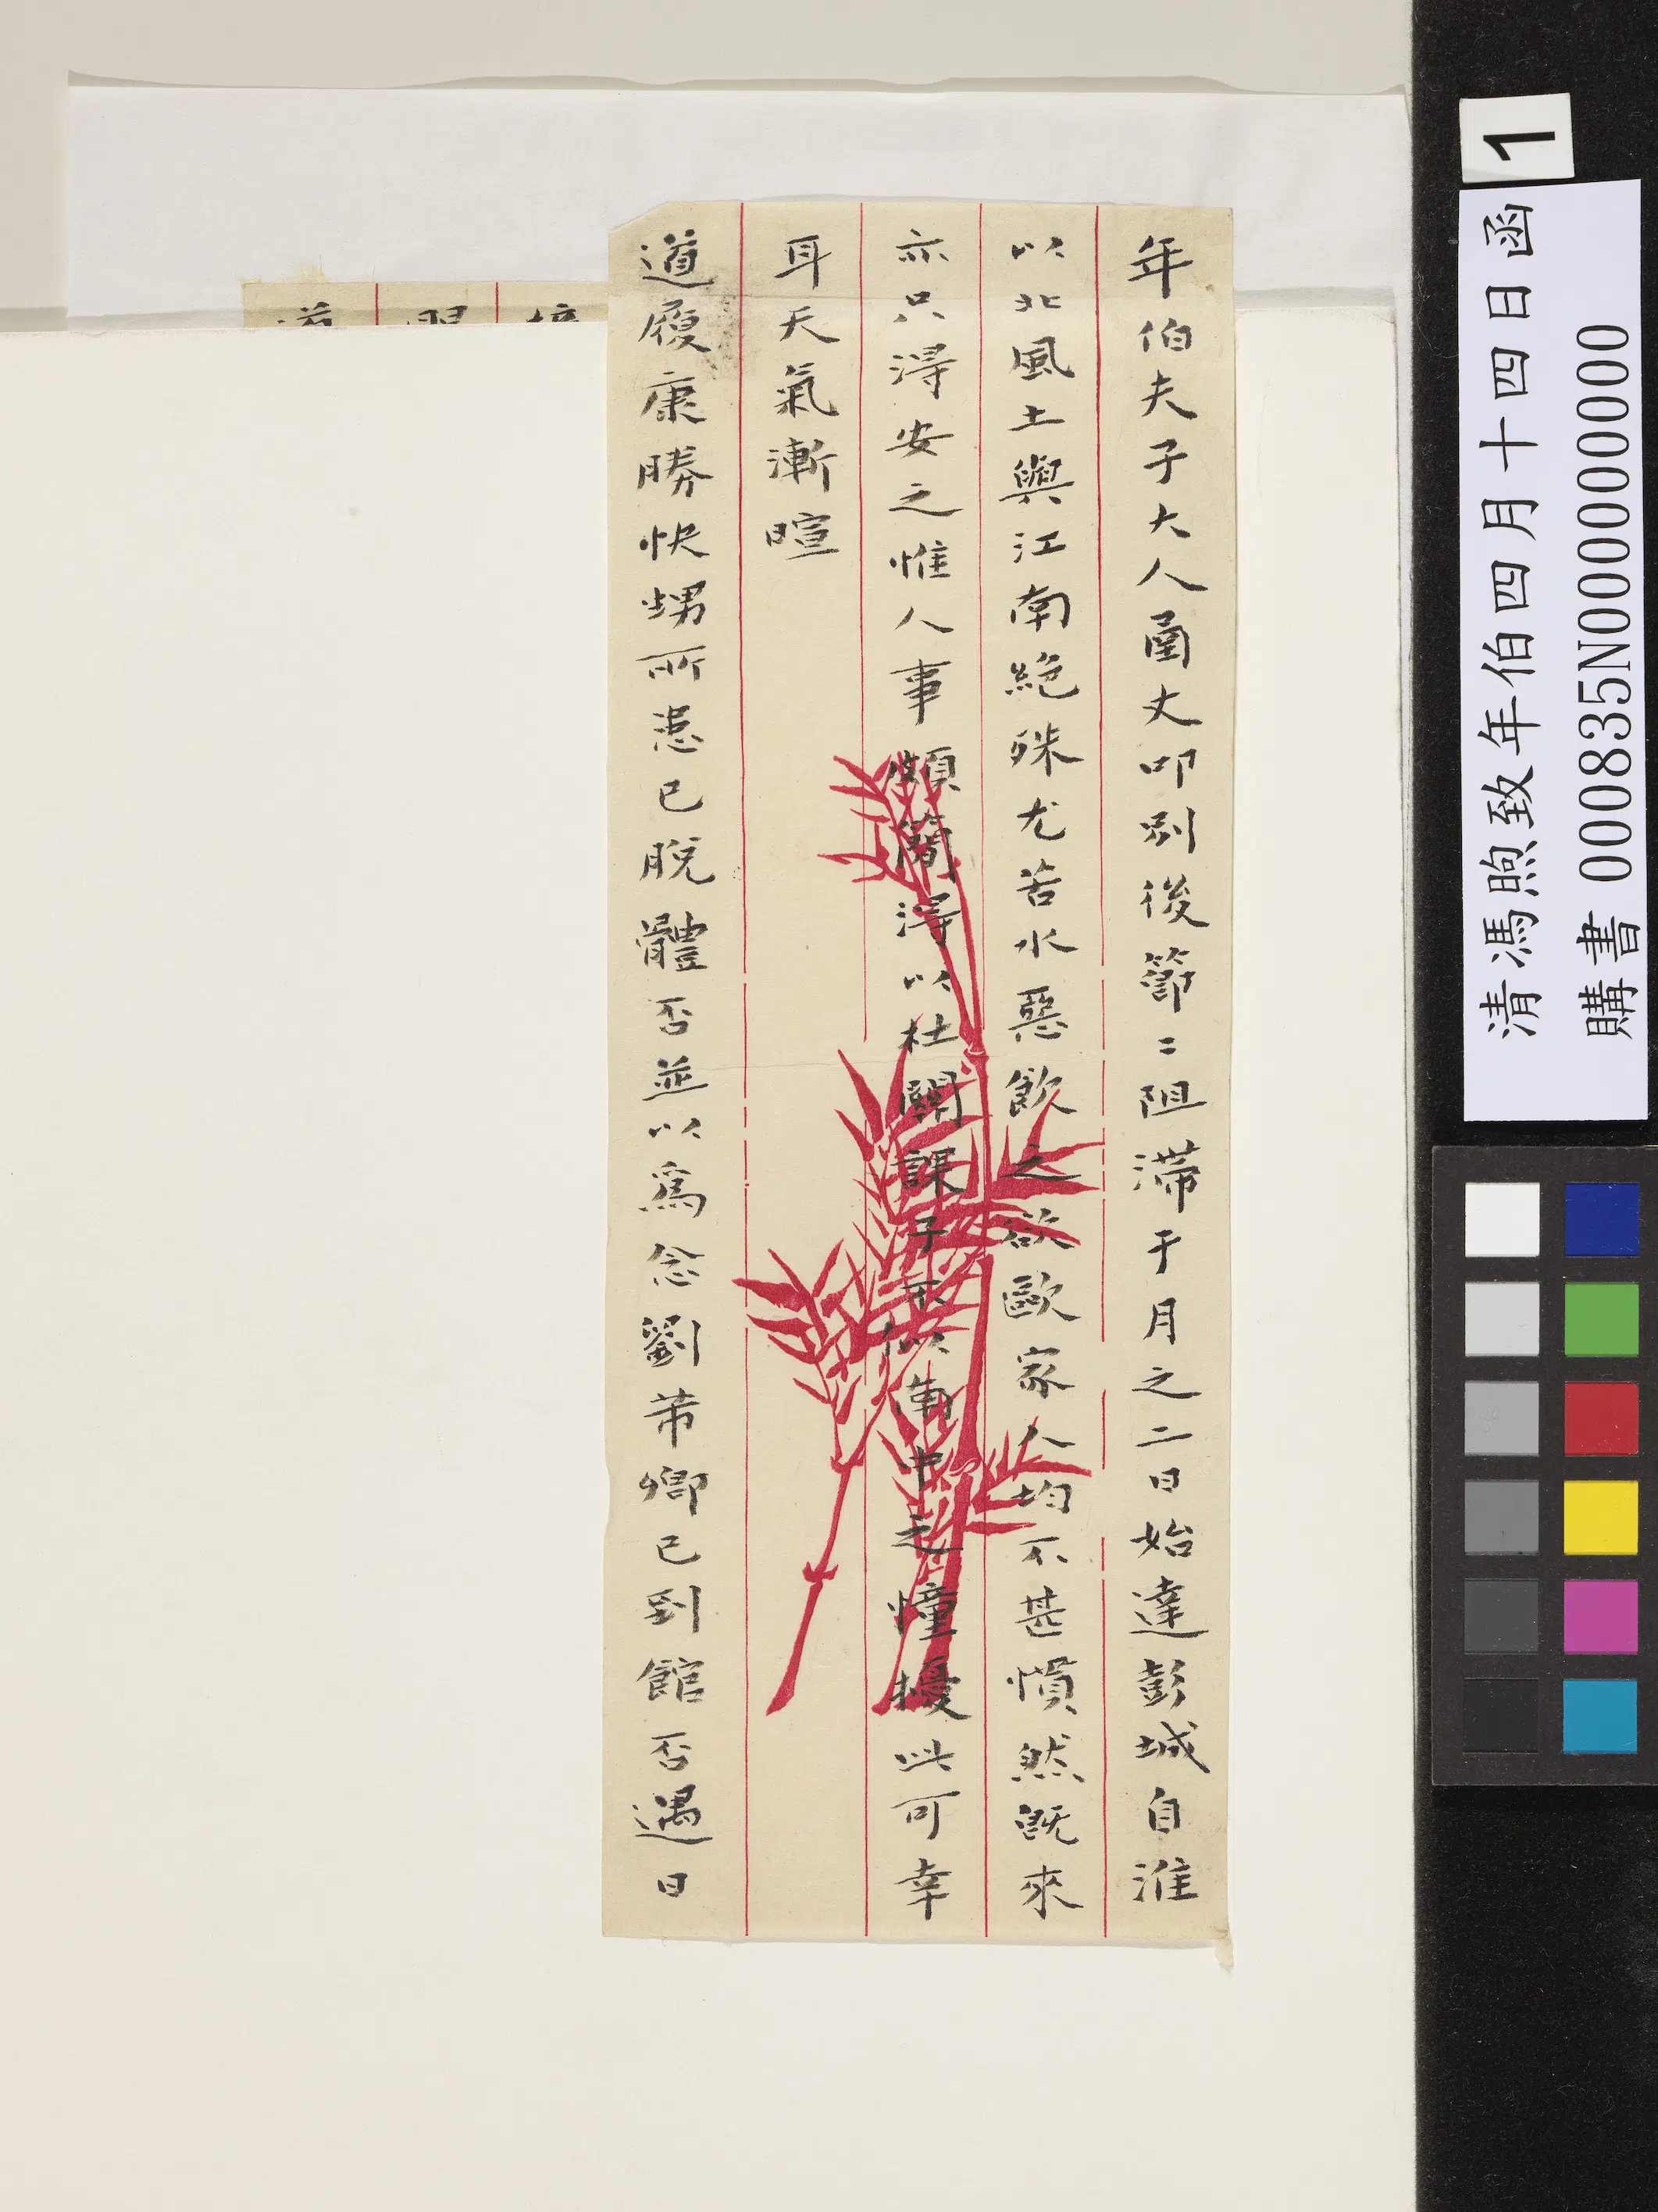 年伯夫子大人圅丈叩別後節〻阻滯于月之二日始達彭城自淮
以北風土與江南絕殊尤苦水惡飲之欲歐家人均不甚慣然旣來
亦只淂安之惟人事頗簡淂以杜關課子不似南中之憧擾此可幸
耳天氣漸暄
道履康勝快甥所恙已脫體否並以爲念劉芾卿已到館否遇日
1
清馮煦致年伯四月十四日函
購書 000835N000000000